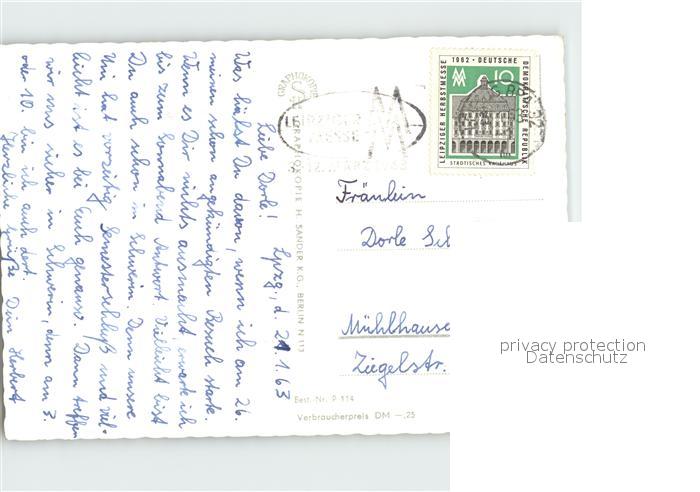 Lpzg., d. 21.1.63
Liebe Dorle!
Was hältst Du davon, wenn ich am 26.
meinen schon angekündigten Besuch starte.
Wenn es Dir nichts ausmacht, erwarte ich
bis zum Sonnabend Antwort. Vielleicht bist
Du auch schon in Schwerin. Denn unsere
Uni hat vorzeitig Semesterschluß und viel-
leicht ist es bei Euch genauso. Dann treffen
wir uns sicher in Schwerin, denn am 3.
oder 10. bin ich auch dort.
Herzliche Grüße Dein Herbert
GRAPHOKOPIE
GRAPHOKOPIE H. SANDER K.G., BERLIN N 113
LEIPZIGER
MESSE
12. MÄRZ 1963
1962 · DEUTSCHE
DEMOKRATISCHE REPUBLIK
LEIPZIGER HERBSTMESSE
10
STÄDTISCHES KAUFHAUS
Fräulein
Dorle Sch
Mühlhause
Ziegelstr.
Best.-Nr. P 114
Verbraucherpreis DM —,25
privacy protection
Datenschutz